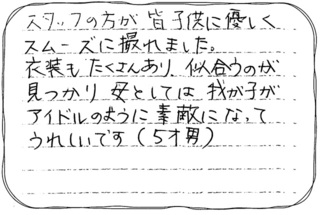 スタッフの方が皆子供に優しく
スムーズに撮れました。
衣装もたくさんあり、似合うのが
見つかり母としては我が子が
アイドルのように素敵になって
うれしいです(5才男)